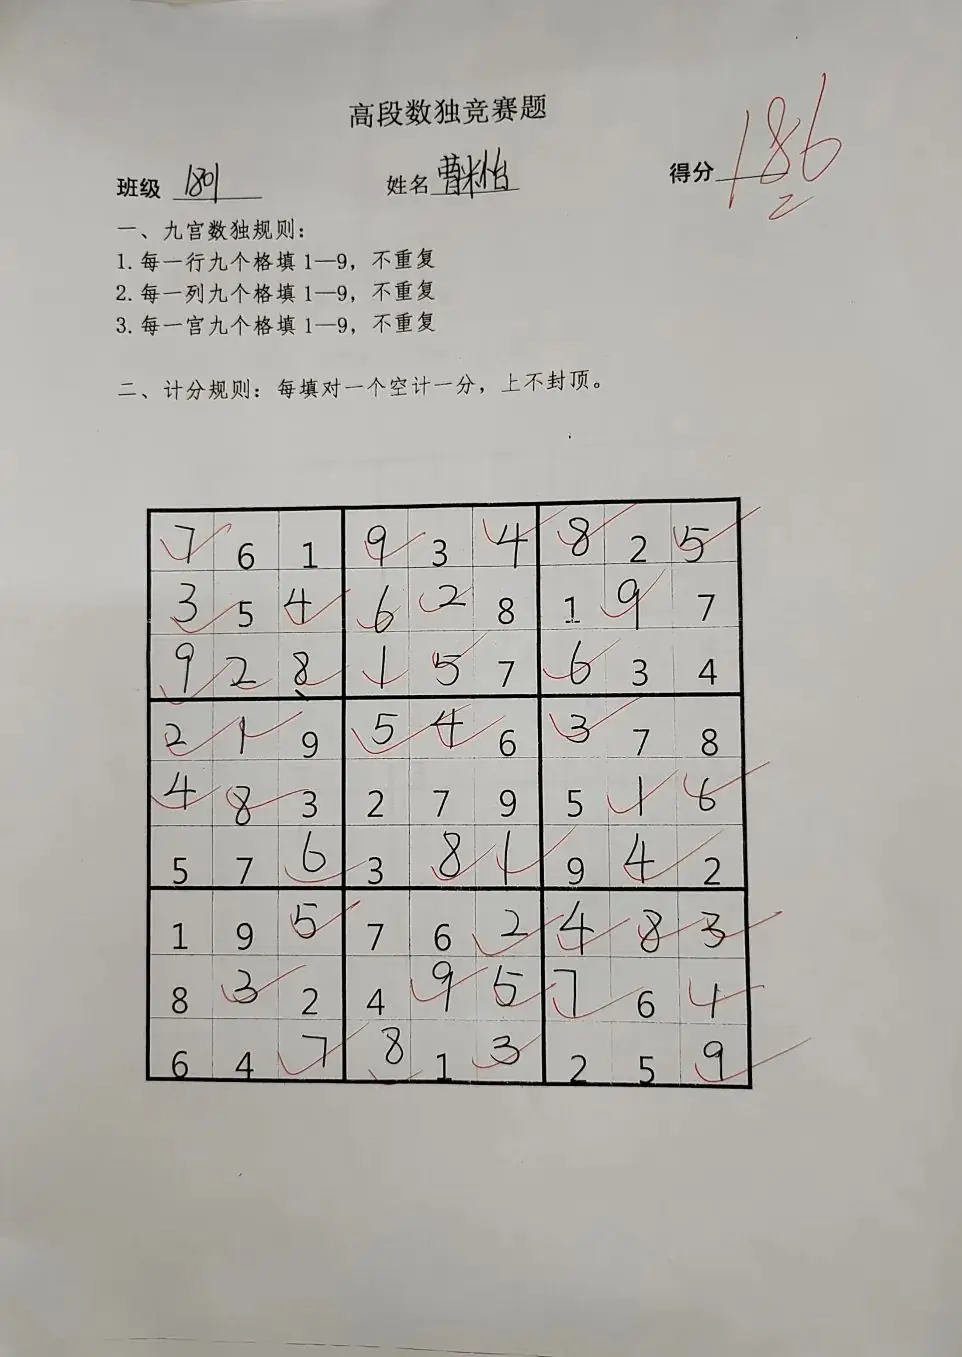 高段数独竞赛题
班级 1801 姓名 曹米怡 得分 186
2
一、九宫数独规则：
1. 每一行九个格填 1—9，不重复
2. 每一列九个格填 1—9，不重复
3. 每一宫九个格填 1—9，不重复
二、计分规则：每填对一个空计一分，上不封顶。
7 6 1 9 3 4 8 2 5
3 5 4 6 2 8 1 9 7
9 2 8 1 5 7 6 3 4
2 1 9 5 4 6 3 7 8
4 8 3 2 7 9 5 1 6
5 7 6 3 8 1 9 4 2
1 9 5 7 6 2 4 8 3
8 3 2 4 9 5 7 6 1
6 4 7 8 1 3 2 5 9